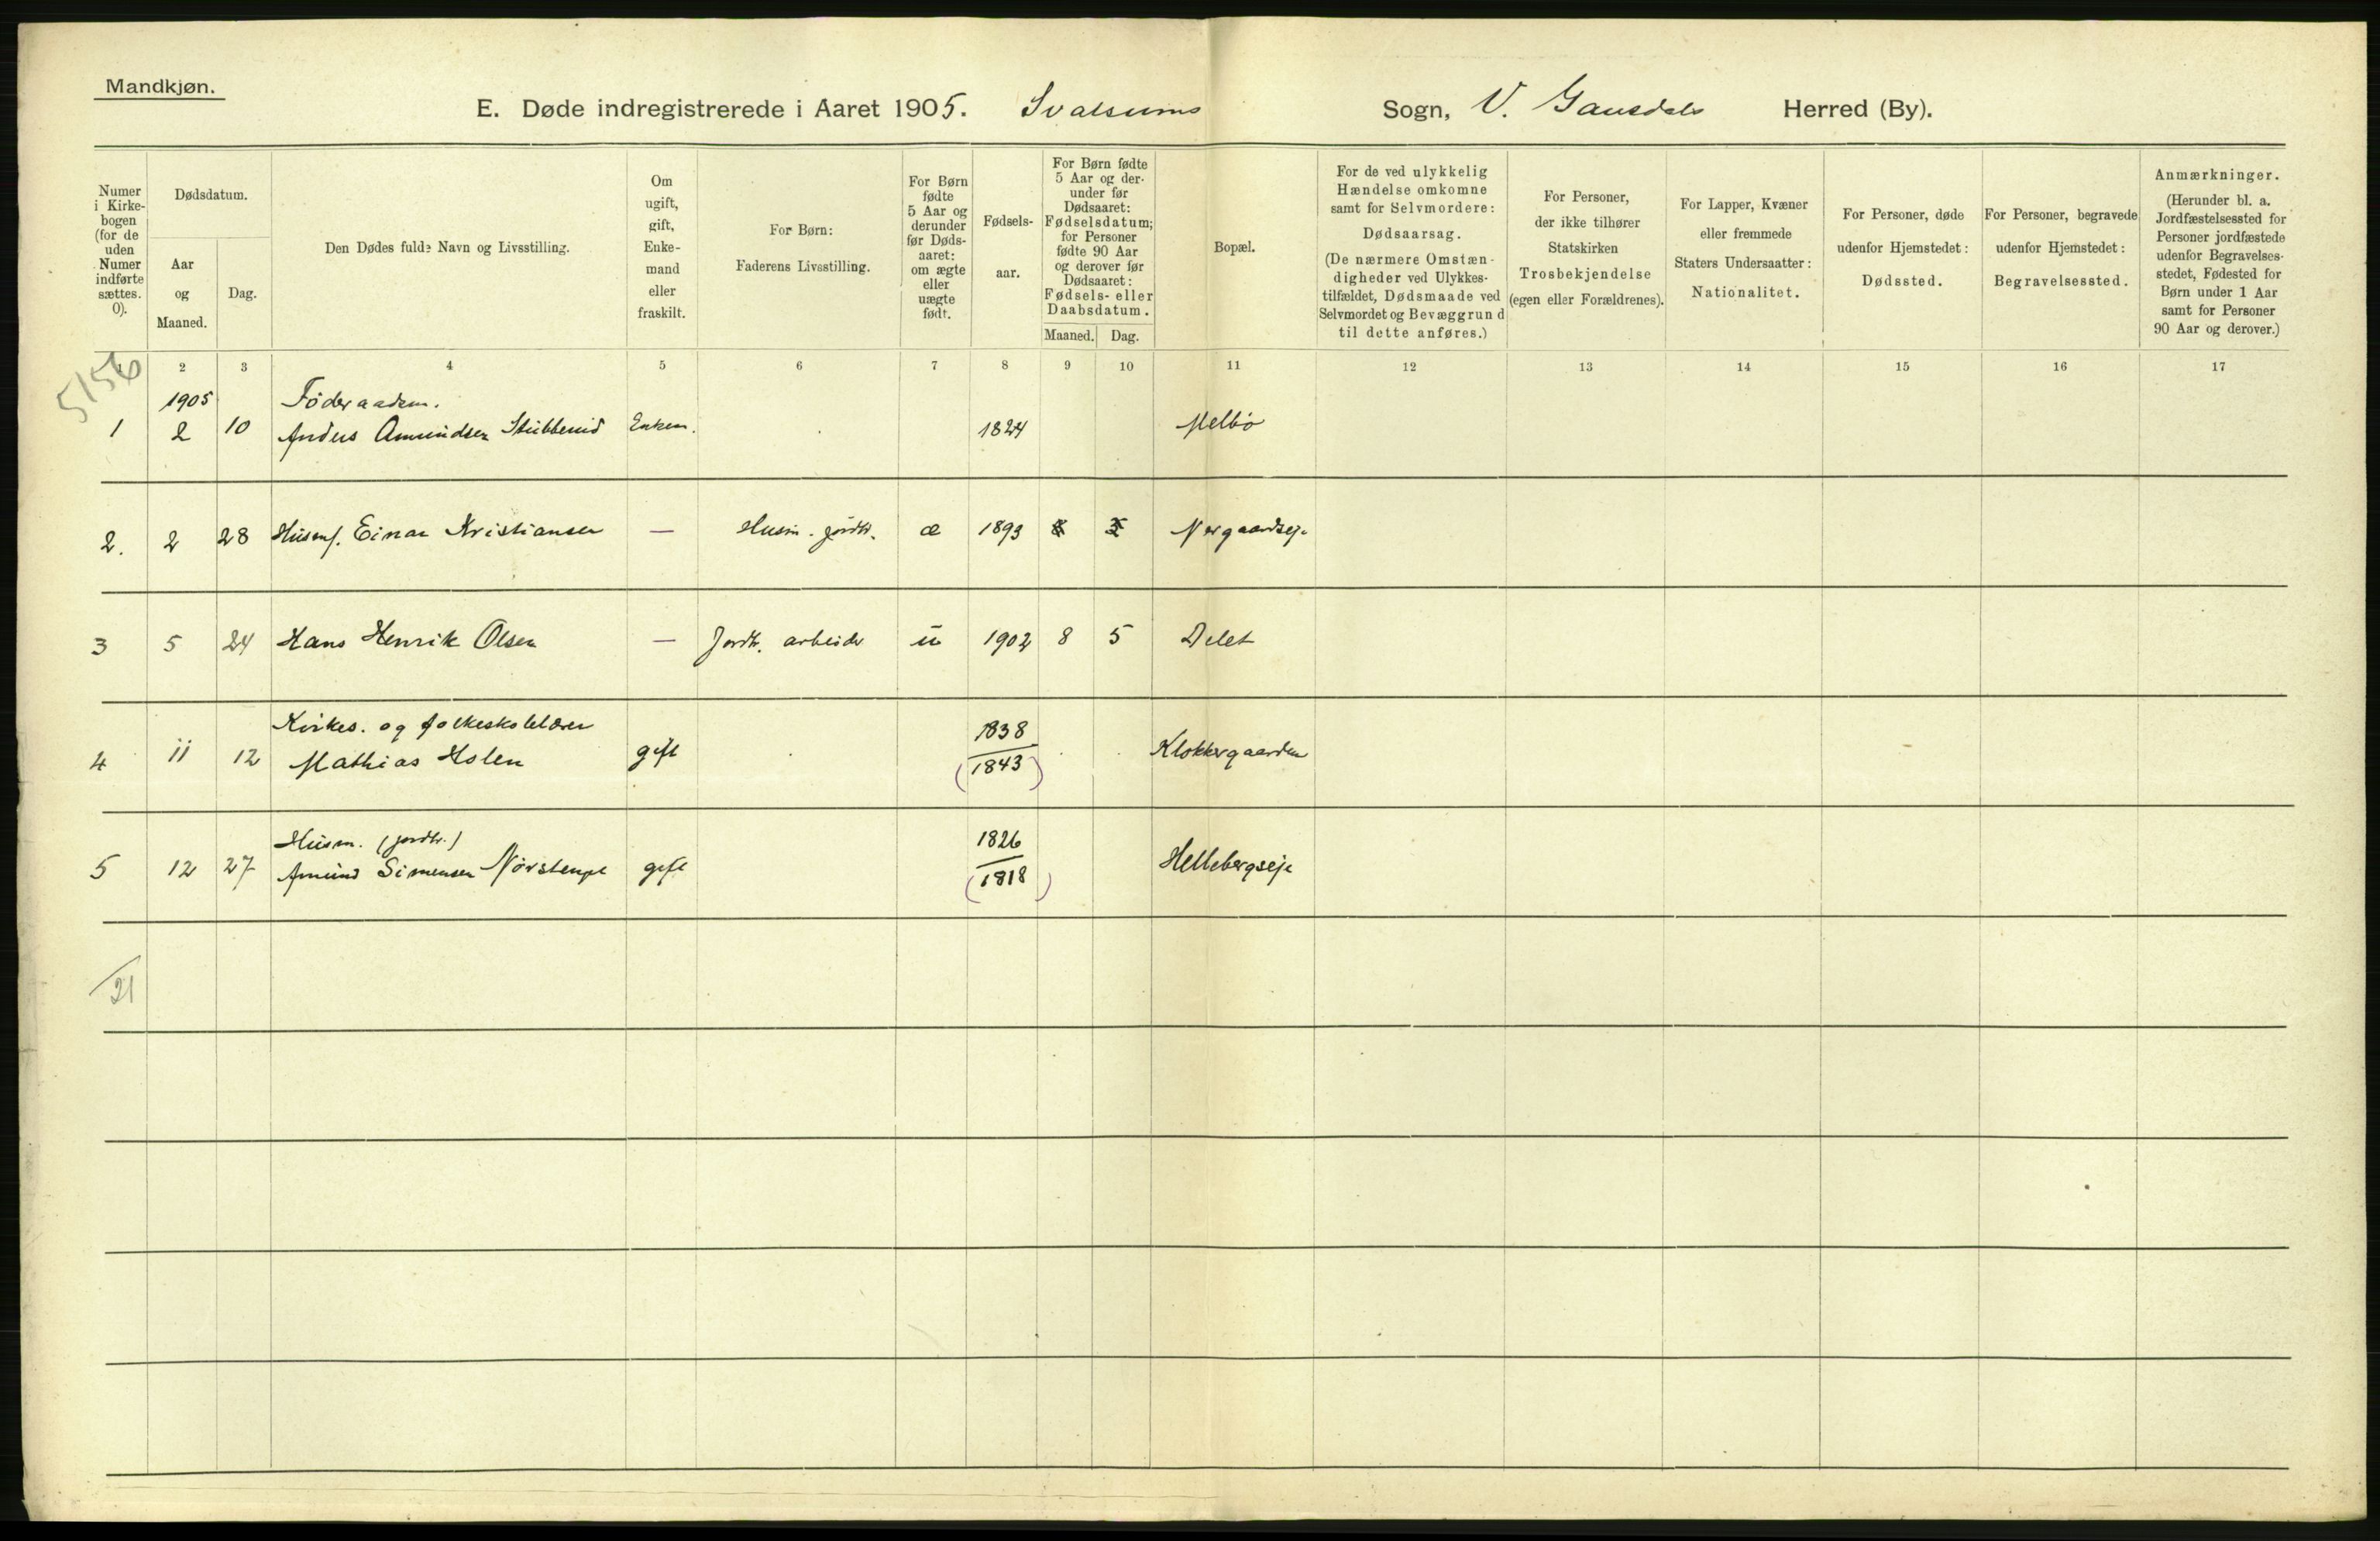 Mandkjøn.
E. Døde indregistrerede i Aaret 1905. Svatsums Sogn, V. Gausdals Herred (By).
Numer i Kirke-bogen (for de uden Numer indførte sættes. 0).
Dødsdatum.
Aar og Maaned.
Dag.
Den Dødes fulde Navn og Livsstilling.
Om ugift, gift, Enke-mand eller fraskilt.
For Børn: Faderens Livsstilling.
For Børn fødte 5 Aar og derunder før Døds-aaret: om ægte eller uægte født.
Fødsels-aar.
For Børn fødte 5 Aar og der-under før Dødsaaret: Fødselsdatum; for Personer fødte 90 Aar og derover før Dødsaaret: Fødsels- eller Daabsdatum.
Maaned. Dag.
Bopæl.
For de ved ulykkelig Hændelse omkomne samt for Selvmordere: Dødsaarsag. (De nærmere Omstæn-digheder ved Ulykkes-tilfældet, Dødsmaade ved Selvmordet og Bevæggrund til dette anføres.)
For Personer, der ikke tilhører Statskirken Trosbekjendelse (egen eller Forældrenes).
For Lapper, Kvæner eller fremmede Staters Undersaatter: Nationalitet.
For Personer, døde udenfor Hjemstedet: Dødssted.
For Personer, begravede udenfor Hjemstedet: Begravelsessted.
Anmærkninger. (Herunder bl. a. Jordfæstelsessted for Personer jordfæstede udenfor Begravelses-stedet, Fødested for Børn under 1 Aar samt for Personer 90 Aar og derover.)
1 2 3 4 5 6 7 8 9 10 11 12 13 14 15 16 17
5156
1905 Föderaadsm.
1 2 10 Anders Amundsen Stubberud Enkem. 1824 Melbö
2. 2 28 Husmf. Einar Kristiansen — Husm. jordbr. æ 1893 Nergaardseje
3 5 24 Hans Henrik Olsen — Jordbr. arbeider u 1902 8 5 Delet
Kirkes. og folkeskolelærer 1838
4 11 12 Mathias Holen gift (1843) Klokkergaarden
Husm. (jordbr.) 1826
5 12 27 Amund Simensen gift (1818) Hellebergseje
21